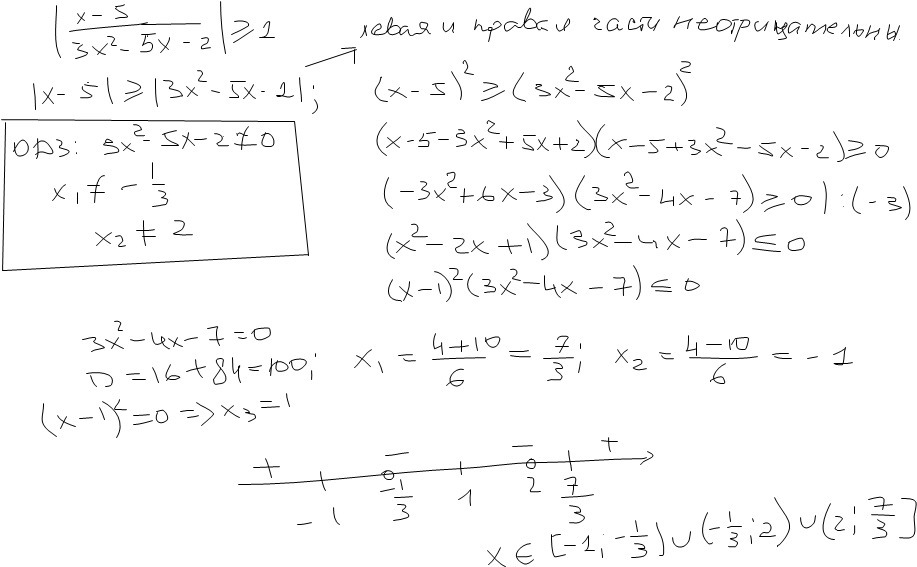 |x-5 / 3x²-5x-2| ≥ 1
левая и правая части неотрицательны
|x-5| ≥ |3x²-5x-2|;
(x-5)² ≥ (3x²-5x-2)²
ОДЗ: 3x²-5x-2≠0
x₁ ≠ -1/3
x₂ ≠ 2
(x-5-3x²+5x+2)(x-5+3x²-5x-2) ≥ 0
(-3x²+6x-3)(3x²-4x-7) ≥ 0 | :(-3)
(x²-2x+1)(3x²-4x-7) ≤ 0
(x-1)²(3x²-4x-7) ≤ 0
3x²-4x-7=0
D=16+84=100;
x₁ = 4+10/6 = 7/3; x₂ = 4-10/6 = -1
(x-1)²=0 => x₃=1
+ - - +
-1 -1/3 1 2 7/3
x ∈ [-1; -1/3) ∪ (-1/3; 2) ∪ (2; 7/3]